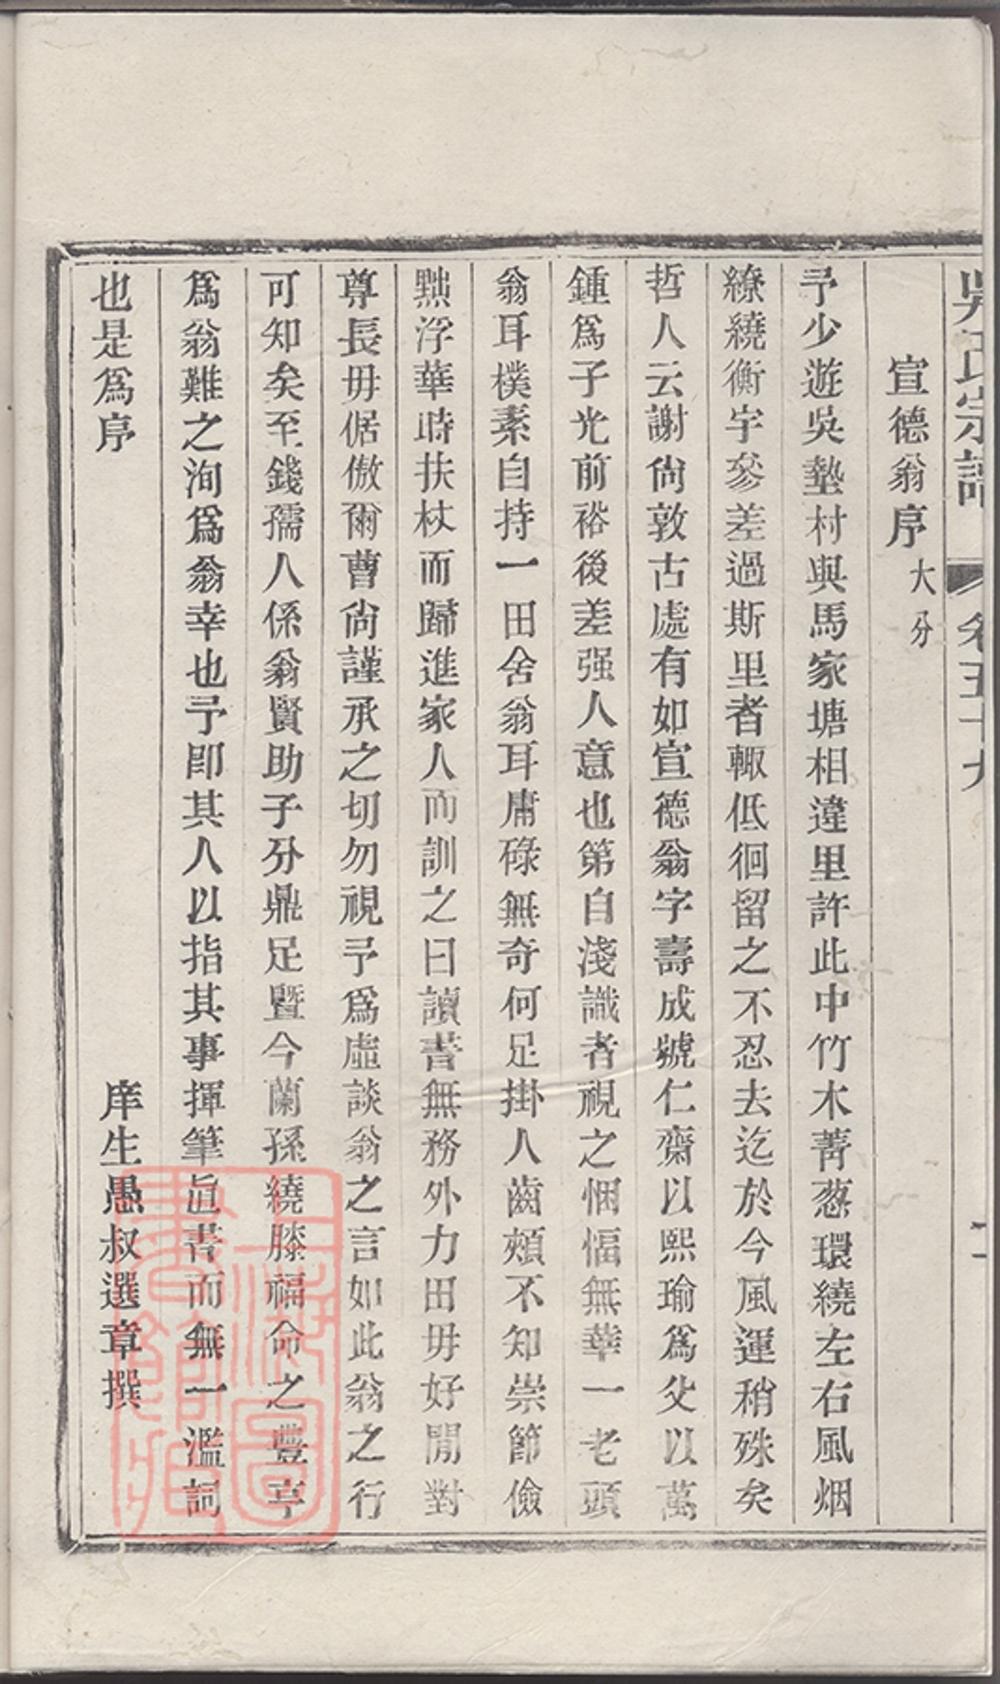 吳氏宗譜 卷五十九
宣德翁序 大分
予少遊吳墊村與馬家塘相違里許此中竹木菁葱環繞左右風烟
繚繞衡宇參差過斯里者輙低徊留之不忍去迄於今風運稍殊矣
哲人云謝尙敦古處有如宣德翁字壽成號仁齋以熙瑜爲父以萬
鍾爲子光前裕後差强人意也第自淺識者視之悃愊無華一老頭
翁耳樸素自持一田舍翁耳庸碌無奇何足掛人齒頰不知崇節儉
黜浮華時扶杖而歸進家人而訓之曰讀書無務外力田毋好閒對
尊長毋倨傲爾曹尙謹承之切勿視予爲虛談翁之言如此翁之行
可知矣至錢孺人係翁賢助子分鼎足曁今蘭孫繞膝福命之豊亭
爲翁難之洵爲翁幸也予卽其人以指其事揮筆直書而無一濫詞
也是爲序
庠生愚叔選章撰
上海圖書館藏